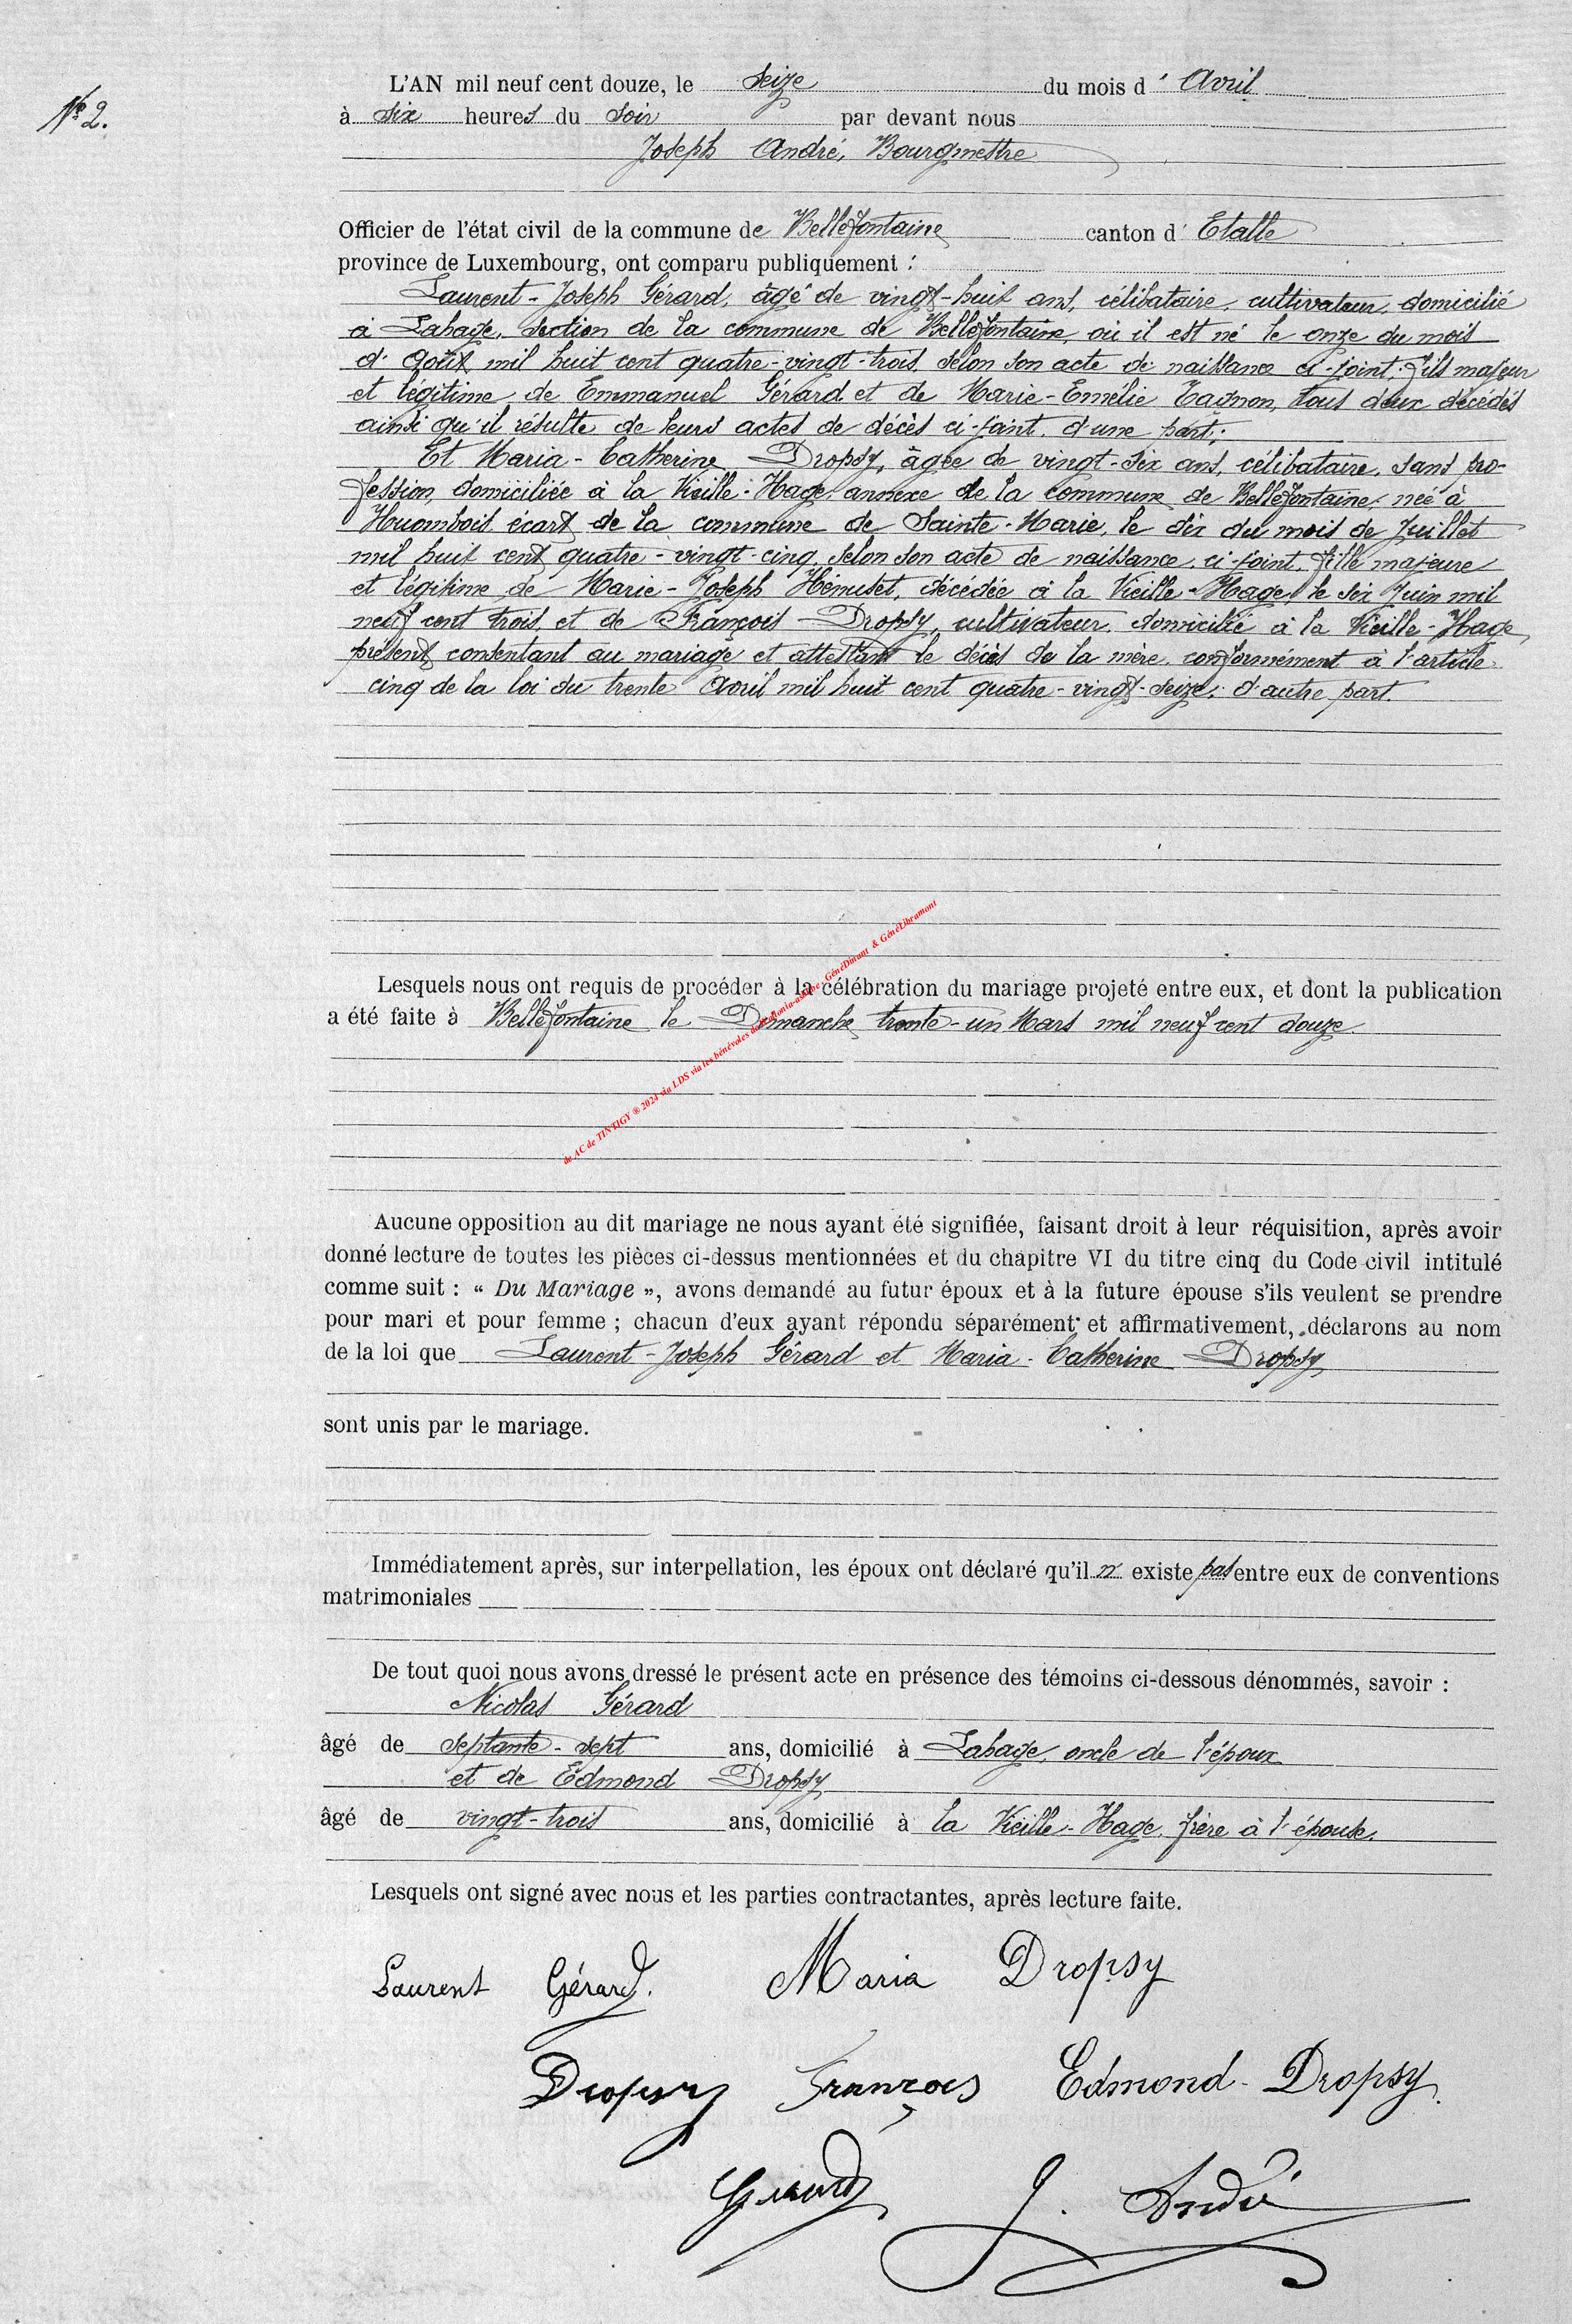 L'AN mil neuf cent douze, le Seize du mois d' Avril
N° 2.
à six heures du soir par devant nous
Joseph André, Bourgmestre
Officier de l'état civil de la commune de Bellefontaine canton d' Etalle
province de Luxembourg, ont comparu publiquement :
Laurent-Joseph Gérard, âgé de vingt-huit ans, célibataire, cultivateur, domicilié
à Lahage, section de la commune de Bellefontaine, où il est né le onze du mois
d'août mil huit cent quatre-vingt-trois selon son acte de naissance ci-joint, fils majeur
et légitime de Emmanuel Gérard et de Marie-Emélie Tagnon, tous deux décédés
ainsi qu'il résulte de leurs actes de décès ci-joint, d'une part;
Et Maria-Catherine Dropsy, âgée de vingt-six ans, célibataire, sans pro-
fession, domiciliée à la Vieille-Hage, annexe de la commune de Bellefontaine, née à
Houombois écart de la commune de Sainte-Marie, le dix du mois de Juillet
mil huit cent quatre-vingt-cinq, selon son acte de naissance ci-joint, fille majeure
et légitime de Marie-Joseph Hémuset, décédée à la Vieille-Hage, le six Juin mil
neuf cent trois et de François Dropsy, cultivateur, domicilié à la Vieille-Hage,
présent, consentant au mariage et attestant le décès de la mère, conformément à l'article
cinq de la loi du trente Avril mil huit cent quatre-vingt-seize; d'autre part.
Lesquels nous ont requis de procéder à la célébration du mariage projeté entre eux, et dont la publication
a été faite à Bellefontaine le Dimanche trente-un Mars mil neuf cent douze.
de AC de TINTIGY ® 2024 via LDS via les bénévoles de GénéDinant & GénéLibramont
Aucune opposition au dit mariage ne nous ayant été signifiée, faisant droit à leur réquisition, après avoir
donné lecture de toutes les pièces ci-dessus mentionnées et du chapitre VI du titre cinq du Code civil intitulé
comme suit : « Du Mariage », avons demandé au futur époux et à la future épouse s'ils veulent se prendre
pour mari et pour femme ; chacun d'eux ayant répondu séparément et affirmativement, déclarons au nom
de la loi que Laurent-Joseph Gérard et Maria-Catherine Dropsy
sont unis par le mariage.
Immédiatement après, sur interpellation, les époux ont déclaré qu'il n' existe pas entre eux de conventions
matrimoniales
De tout quoi nous avons dressé le présent acte en présence des témoins ci-dessous dénommés, savoir :
Nicolas Gérard
âgé de septante-sept ans, domicilié à Lahage, oncle de l'époux
et de Edmond Dropsy
âgé de vingt-trois ans, domicilié à la Vieille-Hage, frère à l'épouse.
Lesquels ont signé avec nous et les parties contractantes, après lecture faite.
Laurent Gérard. Maria Dropsy
Dropsy François Edmond-Dropsy.
Gérard J. André